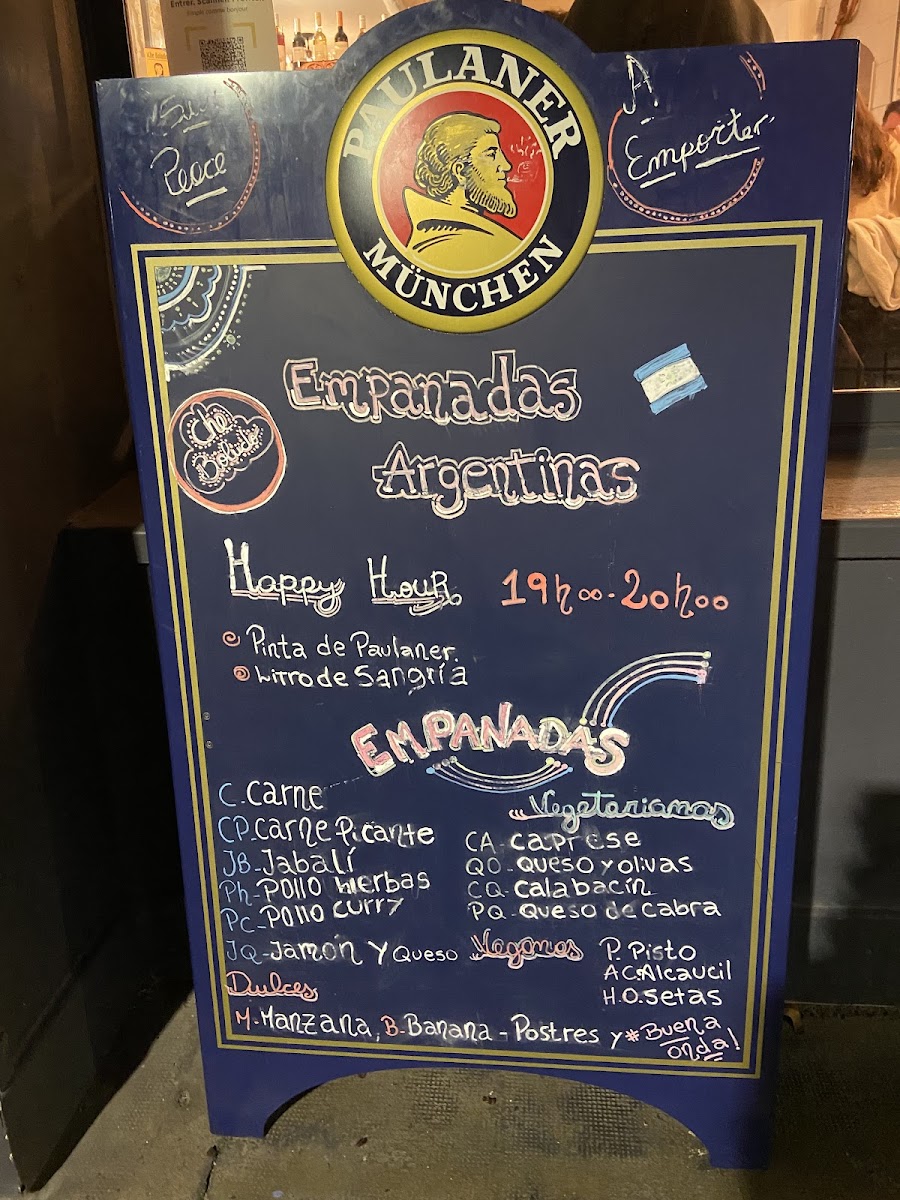 Entrer, Scanner
Peace
A
Emporter.
PAULANER
MÜNCHEN
Empanadas
Argentinas
Che
Boludo
Happy Hour 19h00-20h00
Pinta de Paulaner.
Litro de Sangría
EMPANADAS
C-Carne
CP-Carne Picante
JB-Jabalí
Ph-Pollo hierbas
PC-Pollo curry
JQ-Jamón y Queso
Vegetarianas
CA-Caprese
QO-Queso y olivas
CQ-Calabacín
PQ-Queso de Cabra
Veganas
P. Pisto
AC.Alcaucil
H.O.Setas
Dulces
M-Manzana, B-Banana-Postres y #Buena
onda!